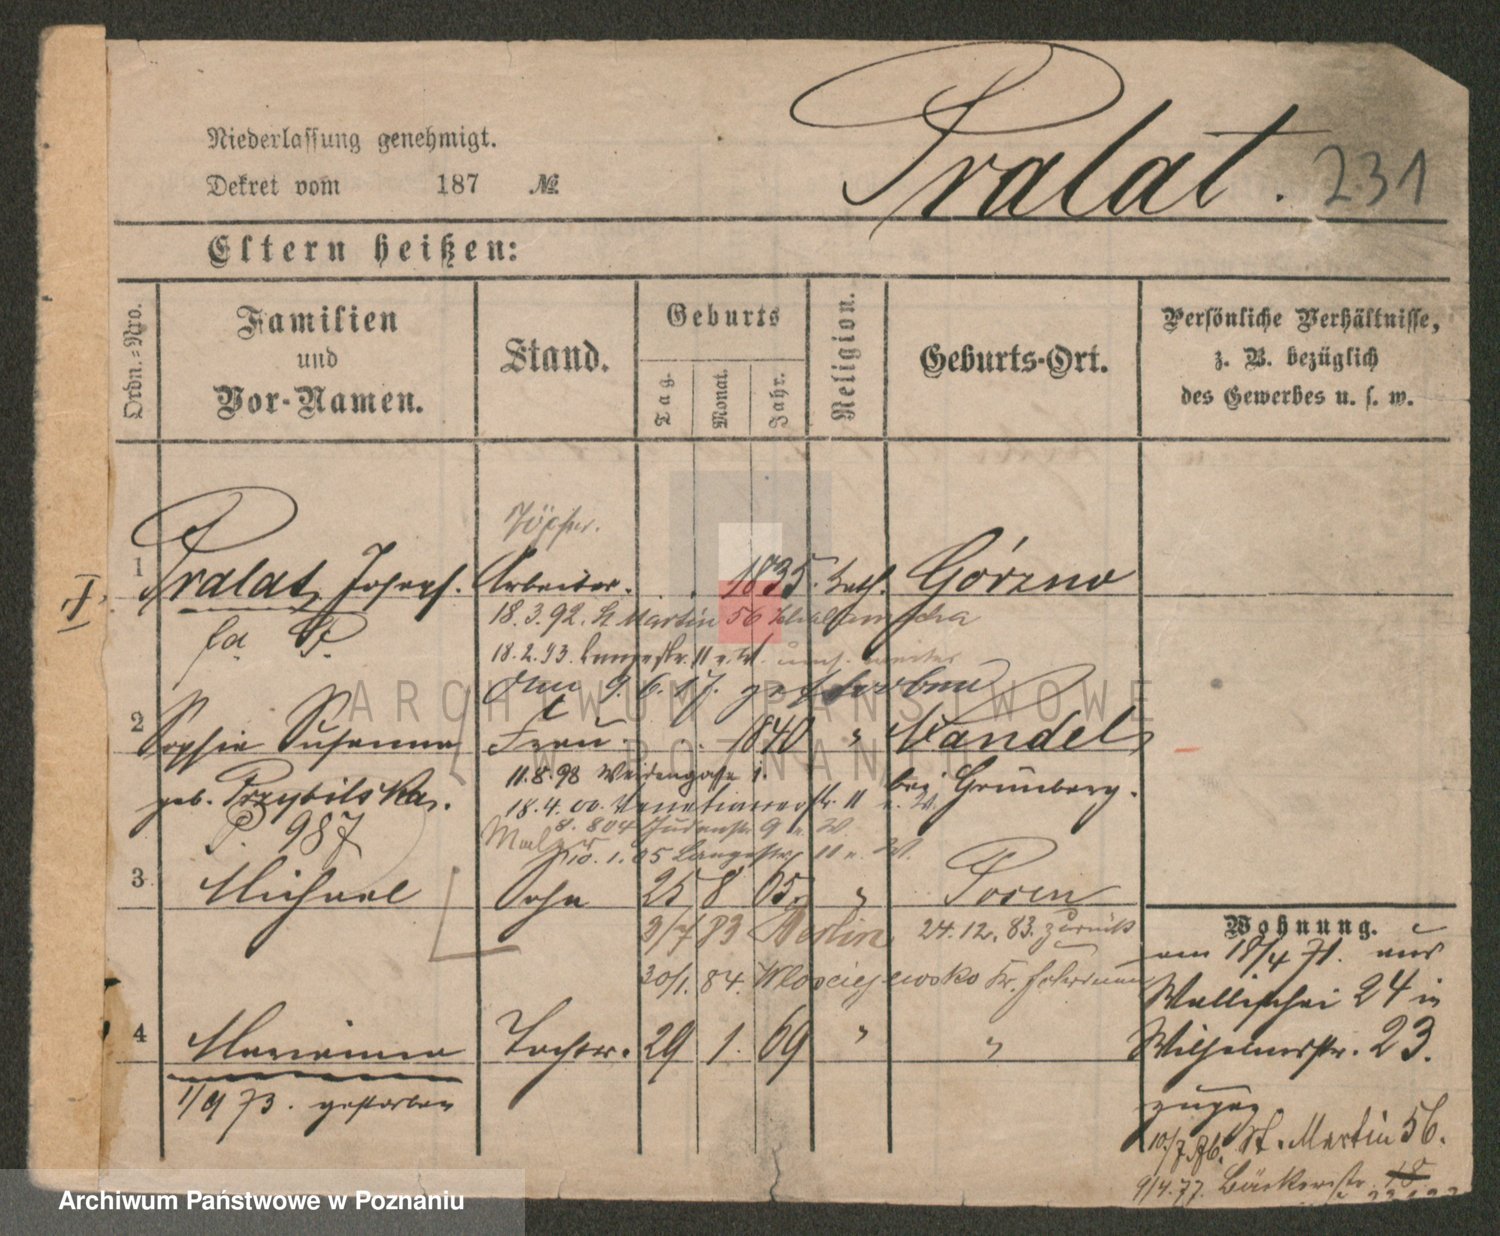 Niederlassung genehmigt.
Dekret vom 187 №
Pralat. 231
Eltern heißen:
Ordn.-Nro.
Familien
und
Vor-Namen.
Stand.
Geburts
Tag.
Monat.
Jahr.
Religion.
Geburts-Ort.
Persönliche Verhältnisse,
z. B. bezüglich
des Gewerbes u. s. w.
Töpfer.
I
1 Pralat, Joseph. Arbeiter. 1835. kath. Górzno
18.3.92. St Martin 56
18.2.93. Langestr. 11
am 9.6.17. gestorben
ARCHIWUM PAŃSTWOWE
W POZNANIU
2 Sophie Susanna Frau. 1840 " Vandel
geb. Przybilska. bei Grünberg.
11.8.98 Weidengasse 1.
P. 987
18.4.00. Venetianerstr. 11
8. 804 Judenstr. 9 n. W.
10.1.05 Langestr. 11 n. W.
3 Michael Sohn 25 8 65. " Posen
3/7 83 Berlin, 24.12.83. zurück
30/1. 84.
4 Marianna Tochter. 29 1. 69 " "
1/9 73. gestorben
Wohnung.
am 18/4 71. aus
Wallischei 24 in
Wilhelmstr. 23.
zugez
10/7 76. St. Martin 56.
9/4.77. Bäckerstr. 18
Archiwum Państwowe w Poznaniu